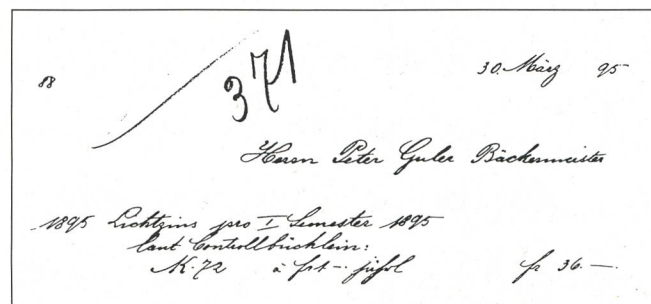 88
371
30. März 95
Herrn Peter Guler Bäckermeister
1895 Lichtzins pro I Semester 1895
laut Controllbüchlein:
N. 72 à fr 1.- fr 36.-